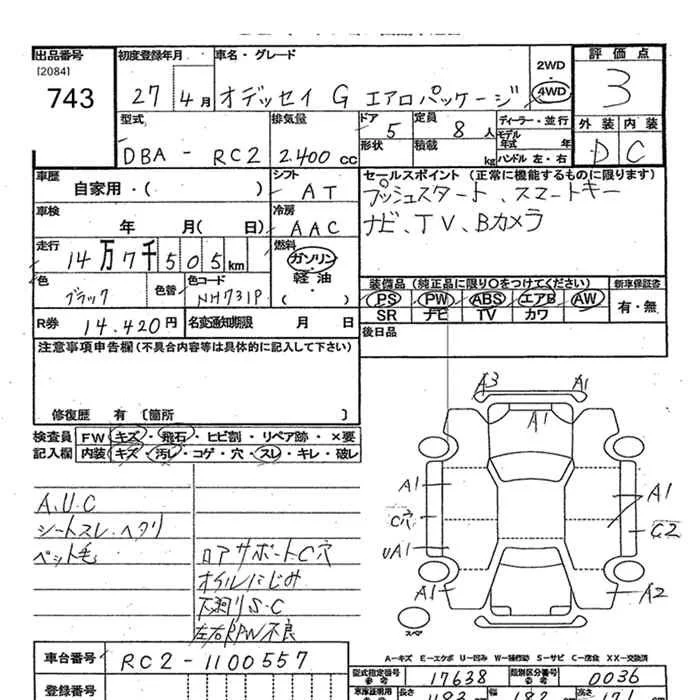 出品番号
[2084]
743
初度登録年月
27 4月
車名・グレード
オデッセイ G エアロパッケージ
2WD
・
4WD
評価点
3
外装 内装
D C
型式
DBA - RC2
排気量
2.400 cc
ドア 5
形状
定員 8 人
積載 kg
ディーラー・並行
モデル
年式 年
ハンドル 左・右
車歴
自家用・( )
シフト
AT
セールスポイント (正常に機能するものに限ります)
プッシュスタート、スマートキー
ナビ、TV、Bカメラ
車検
年 月( 日)
冷房
AAC
走行
14万7千505km
燃料
ガソリン
・
軽油
( )
色
ブラック
色替
色コード
NH731P
装備品 (純正品に限り○をつけてください)
新車保証書
PS PW ABS エアB AW
SR ナビ TV カワ
有・無
R券 14.420円
名変通知期限 月 日
後日品
注意事項申告欄(不具合内容等は具体的に記入して下さい)
修復歴 有 〔箇所 〕
検査員
記入欄
FW キズ・飛石・ヒビ割・リペア跡・×要
内装 キズ・汚レ・コゲ・穴・スレ・キレ・破レ
A.U.C
シートスレ・ヘタリ
ペット毛
ロアサポートC穴
オイルにじみ
下廻りS・C
左右RPW不良
A3 A1
A1
A1 A1
C穴 C2
UA1
A1 A2
スペア
A—キズ E—エクボ U—凹み W—補修跡 S—サビ C—腐食 XX—交換済
車台番号 RC2-1100557
型式指定番号
参考
17638
類別区分番号
参考
0036
登録番号
車庫証明用
長さ 483 幅 182 高さ 171